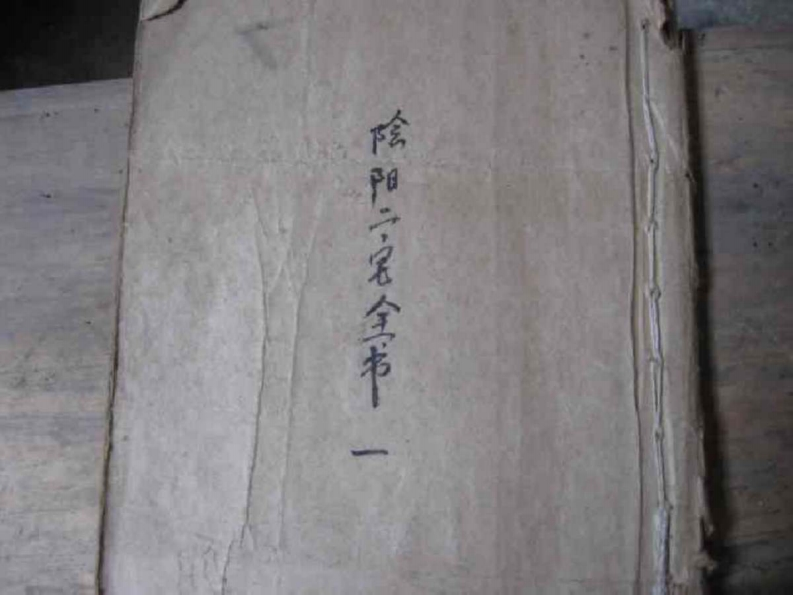 陰阳二宅全书 一